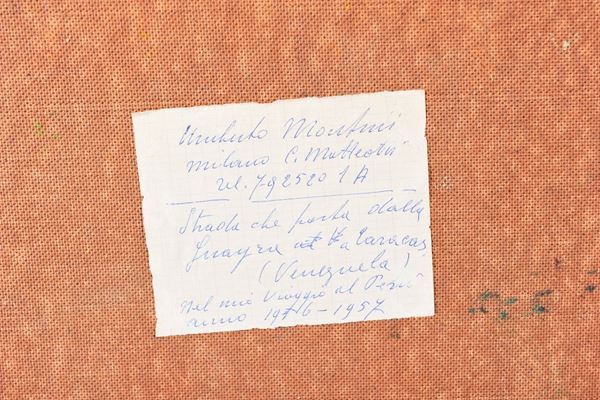 Umberto Montini
Milano C. Matteotti
tel. 792520 1 A
Strada che porta dalla
Guayra a Caracas
(Venezuela)
Nel mio viaggio al Perù
anno 1956-1957